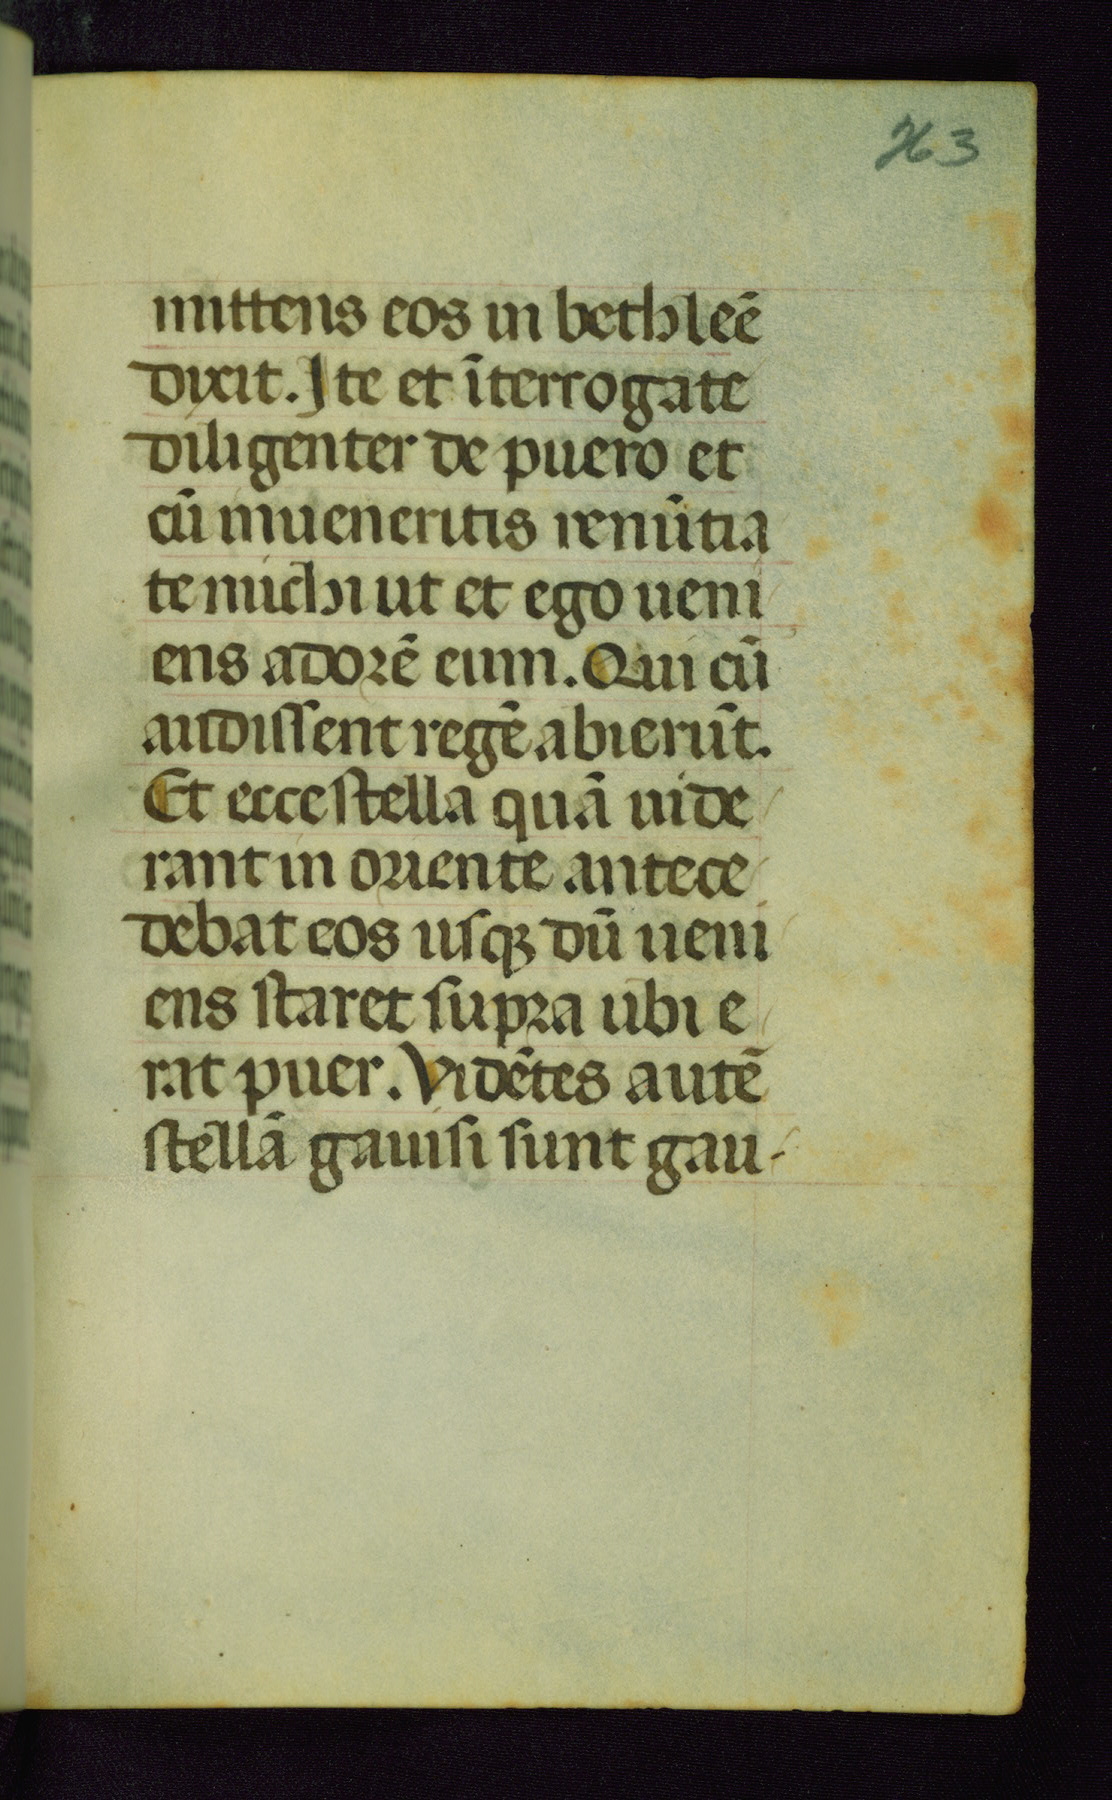 263
mittens eos in bethleē
dixit. Ite et īterrogate
diligenter de puero et
cū inueneritis renūtia
te michi ut et ego ueni
ens adorē eum. Qui cū
audissent regē abierūt.
Et ecce stella quā uide
rant in oriente antece
debat eos usqꝫ dū ueni
ens staret supra ubi e
rat puer. Vidētes autē
stellā gauisi sunt gau-